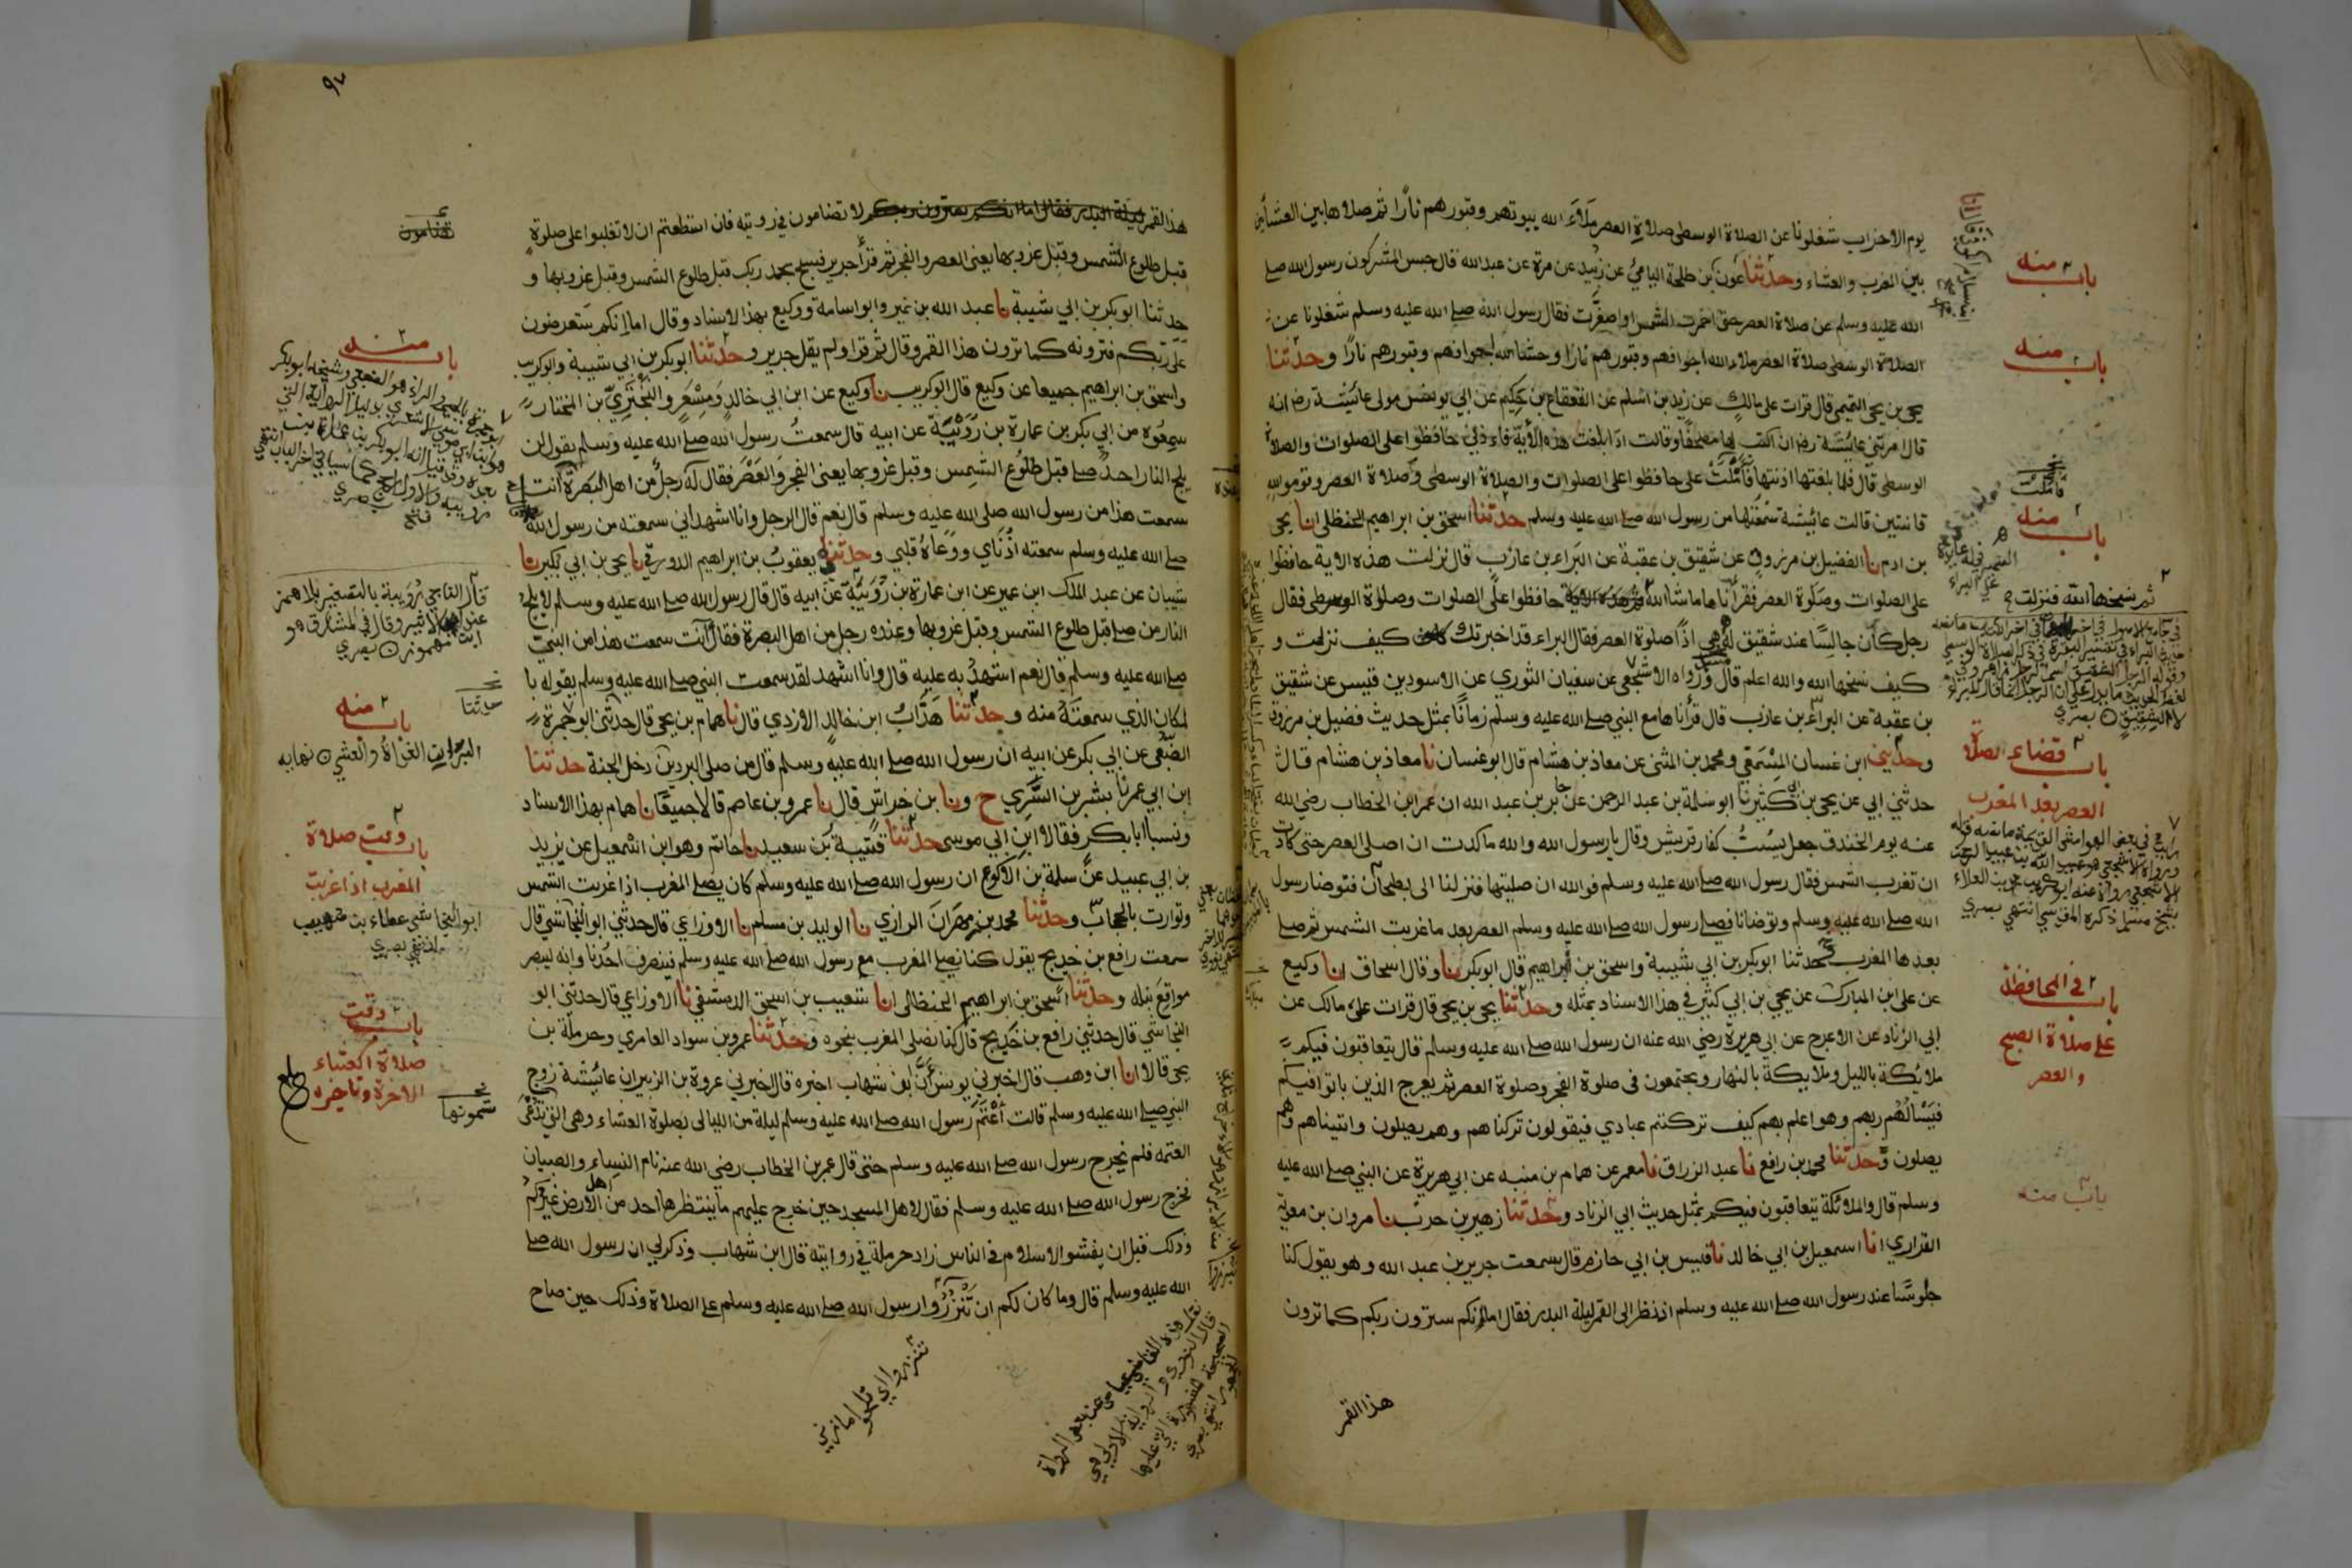 يوم الاحزاب شغلونا عن الصلاة الوسطى صلاة العصر ملاء الله بيوتهم وقبورهم نارًا ثم صلاها بين العشائين
بين المغرب والعشاء وحدثنا عون بن طلحة اليامي عن زبيد عن مرة عن عبد الله قال حبس المشركون رسول الله صلى
الله عليه وسلم عن صلاة العصر حتى احمرت الشمس او اصفرت فقال رسول الله صلى الله عليه وسلم شغلونا عن
الصلاة الوسطى صلاة العصر ملاء الله اجوافهم وقبورهم نارا او حشا الله اجوافهم وقبورهم نارًا وحدثنا
يحيى بن يحيى التميمي قال قرات على مالك عن زيد بن اسلم عن القعقاع بن حكيم عن ابي يونس مولى عائشة رض انه
قال امرتني عائشة رض ان اكتب لها مصحفًا وقالت اذا بلغت هذه الأية فاذني حافظوا على الصلوات والصلاة
الوسطى قال فلما بلغتها اذنتها فأملت على حافظوا على الصلوات والصلاة الوسطى وصلاة العصر وقوموا لله
قانتين قالت عائشة سمعتها من رسول الله صلى الله عليه وسلم حدثنا اسحق بن ابراهيم الحنظلي انا يحيى
بن ادم نا الفضيل بن مرزوق عن شقيق بن عقبة عن البراء بن عازب قال نزلت هذه الاية حافظوا
على الصلوات وصلوة العصر فقرأناها ماشا الله حافظوا على الصلوات وصلوة الوسطى فقال
رجل كان جالسًا عند شقيق له هي اذًا صلوة العصر فقال البراء قد اخبرتك كيف نزلت و
كيف نسخها الله والله اعلم قال ورواه الاشجعي عن سفيان الثوري عن الاسود بن قيس عن شقيق
بن عقبة عن البراء بن عازب قال قرأنا ها مع النبي صلى الله عليه وسلم زمانًا بمثل حديث فضيل بن مرزوق
وحدثني ابن غسان المسمعي ومحمد بن المثنى عن معاذ بن هشام قال ابو غسان نا معاذ بن هشام قال
حدثني ابي عن يحيى بن ابي كثير نا ابو سلمة بن عبد الرحمن عن جابر بن عبد الله ان عمر ابن الخطاب رضي الله
عنه يوم الخندق جعل يسُبّ كفار قريش وقال يا رسول الله والله ما كدت ان اصلى العصر حتى كادت
ان تغرب الشمس فقال رسول الله صلى الله عليه وسلم فوالله ان صليتها فنزلنا الى بطحان فتوضا رسول
الله صلى الله عليه وسلم وتوضانا فصلى رسول الله صلى الله عليه وسلم العصر بعد ما غربت الشمس ثم صلى
بعدها المغرب وحدثنا ابو بكر بن ابي شيبة واسحق بن ابراهيم قال ابو بكر نا وقال اسحاق انا وكيع
عن على ابن المبارك عن يحيى بن ابي كثير في هذا الاسناد بمثله وحدثنا يحيى بن يحيى قال قرات على مالك عن
ابي الزناد عن الاعرج عن ابي هريرة رضي الله عنه ان رسول الله صلى الله عليه وسلم قال يتعاقبون فيكم
ملائكة بالليل وملايكة بالنهار ويجتمعون فى صلوة الفجر وصلوة العصر ثم يعرج الذين باتوا فيكم
فيَسْألُهُم ربهم وهو اعلم بهم كيف تركتم عبادي فيقولون تركناهم وهم يصلون واتيناهم وهم
يصلون وحدثنا محمد بن رافع نا عبد الرزاق نا معمر عن همام بن منبه عن ابي هريرة عن النبي صلى الله عليه
وسلم قال والملائكة يتعاقبون فيكم بمثل حديث ابي الزناد وحدثنا زهير بن حرب نا مروان بن معوية
الفزاري انا اسمعيل بن ابي خالد نا قيس بن ابي حازم قال سمعت جرير بن عبد الله وهو يقول كنا
جلوسًا عند رسول الله صلى الله عليه وسلم اذ نظر الى القمر ليلة البدر فقال اما انكم سترون ربكم كما ترون
هذا القمر
باب منه
باب منه
فأملت
باب منه
ثم نسخها الله فنزلت
باب قضاء الصلاة
العصر بعد المغرب
باب في المحافظة
على صلاة الصبح
والعصر
باب منه
٩٧
هذا القمر ليلة البدر فقال اما انكم سترون ربكم لا تضامون في رويته فان استطعتم ان لا تغلبوا على صلوة
قبل طلوع الشمس وقبل غروبها يعنى العصر والفجر ثم قرأ جرير فسبح بحمد ربك قبل طلوع الشمس وقبل غروبها و
حدثنا ابو بكر بن ابي شيبة نا عبد الله بن نمير وابو اسامة ووكيع بهذا الاسناد وقال اما انكم ستعرضون
على ربكم فترونه كما ترون هذا القمر وقال ثم قرا ولم يقل جرير وحدثنا ابو بكر بن ابي شيبة وابو كريب
واسحق بن ابراهيم جميعا عن وكيع قال ابو كريب نا وكيع عن ابن ابي خالد ومِسْعَر والبَخْتَرِيّ بن المختار
سمعوه من ابي بكر بن عمارة بن رؤيبة عن ابيه قال سمعتُ رسول الله صلى الله عليه وسلم يقول لن
يلج النار احد صلى قبل طلوع الشمس وقبل غروبها يعنى الفجر والعصر فقال له رجل من اهل البصرة آنت
سمعت هذا من رسول الله صلى الله عليه وسلم قال نعم قال الرجل وانا اشهد اني سمعته من رسول الله
صلى الله عليه وسلم سمعته اذناي ووعاه قلبي وحدثني يعقوب بن ابراهيم الدورقي نا يحيى بن ابي بكير نا
شيبان عن عبد الملك ابن عمير عن ابن عمارة بن رُوَيبة عن ابيه قال قال رسول الله صلى الله عليه وسلم لا يلج
النار من صلى قبل طلوع الشمس وقبل غروبها وعنده رجل من اهل البصرة فقال آنت سمعت هذا من النبي
صلى الله عليه وسلم قال نعم اشهدُ به عليه قال وانا اشهد لقد سمعت النبي صلى الله عليه وسلم يقوله با
لمكان الذي سمعتَهُ منه وحدثنا هَدّابُ ابن خالد الازدي قال نا همام بن يحيى قال حدثني ابو جمرة
الضبعي عن ابي بكر عن ابيه ان رسول الله صلى الله عليه وسلم قال من صلى البردين دخل الجنة حدثنا
ابن ابي عمر نا بشر بن السَّرِي ح ونا بن خراش قال نا عمرو بن عاصم قالا جميعًا نا همام بهذا الاسناد
ونسبا ابا بكر فقالا ابن ابي موسى حدثنا قتيبة بن سعيد نا حاتم وهو ابن اسمعيل عن يزيد
بن ابي عبيد عن سلمة بن الاكوع ان رسول الله صلى الله عليه وسلم كان يصلى المغرب اذا غربت الشمس
وتوارت بالحجاب وحدثنا محمد بن مِهرَانَ الرازي نا الوليد بن مسلم نا الاوزاعي قال حدثني ابو النجاشي قال
سمعت رافع بن خديج يقول كنا نصلى المغرب مع رسول الله صلى الله عليه وسلم فينصرف احدنا وانه ليبصر
مواقع نبله وحدثنا اسحق بن ابراهيم الحنظلى انا شعيب بن اسحق الدمشقي نا الاوزاعي قال حدثنى ابو
النجاشي قال حدثني رافع بن خديج قال كنا نصلى المغرب بنحوه وحدثنا عمرو بن سواد العامري وحرملة بن
يحيى قالا انا ابن وهب قال اخبرني يونس أنّ ابن شهاب اخبره قال اخبرني عروة بن الزبير ان عائشة زوج
النبي صلى الله عليه وسلم قالت أعْتَمَ رسول الله صلى الله عليه وسلم ليلة من الليالى بصلوة العشاء وهى التي تدعى
العتمه فلم يخرج رسول الله صلى الله عليه وسلم حتى قال عمر بن الخطاب رضي الله عنه نام النساء والصبيان
فخرج رسول الله صلى الله عليه وسلم فقال لاهل المسجد حين خرج عليهم ما ينتظرها احد من اهل الارض غيركم
وذلك قبل ان يفشوا الاسلام فى الناس زاد حرملة في روايته قال ابن شهاب وذكر لي ان رسول الله صلى
الله عليه وسلم قال وما كان لكم ان تَنْزُرُوا رسول الله صلى الله عليه وسلم على الصلاة وذلك حين صاح
تضامون
باب منه
قال القاضي رُؤيبة بالتصغير بلا همز
باب منه
البردين الغداة والعشي نهايه
باب وقت صلاة
المغرب اذا غربت
ابو النجاشي عطاء بن صهيب
انتهى بصري
باب وقت
صلاة العشاء
الاخرة وتاخيره
تنزروا اي تلحوا